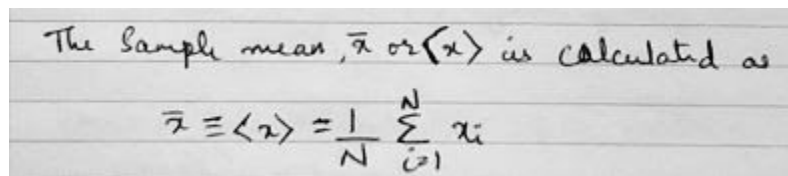 The Sample mean, x̄ or ⟨x⟩ is calculated as
x̄ ≡ ⟨x⟩ = 1/N ∑_{i=1}^{N} x_i